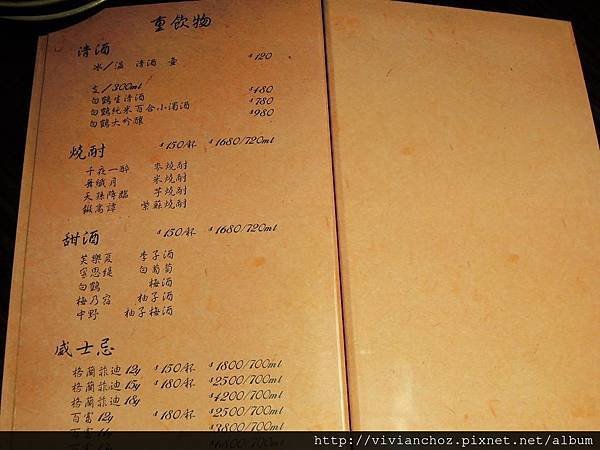 重飲物
清酒
冰／溫 清酒 壺 $120
支／300ml
白鶴生清酒 $480
白鶴純米百合小濁酒 $780
白鶴大吟釀 $980
燒酎 $150/杯 $1680/720ml
千夜一醉 麥燒酎
舞纖月 米燒酎
天孫降臨 芋燒酎
鍛高譚 紫蘇燒酎
甜酒 $150/杯 $1680/720ml
芙樂夏 李子酒
寧思緹 白葡萄
白鶴 梅酒
梅乃宿 柚子酒
中野 柚子梅酒
威士忌
格蘭菲迪 12y $150/杯 $1800/700ml
格蘭菲迪 15y $180/杯 $2500/700ml
格蘭菲迪 18y $4200/700ml
百富 12y $180/杯 $2500/700ml
百富 $3800/700ml
$6800/700ml
http://vivianchoz.pixnet.net/album